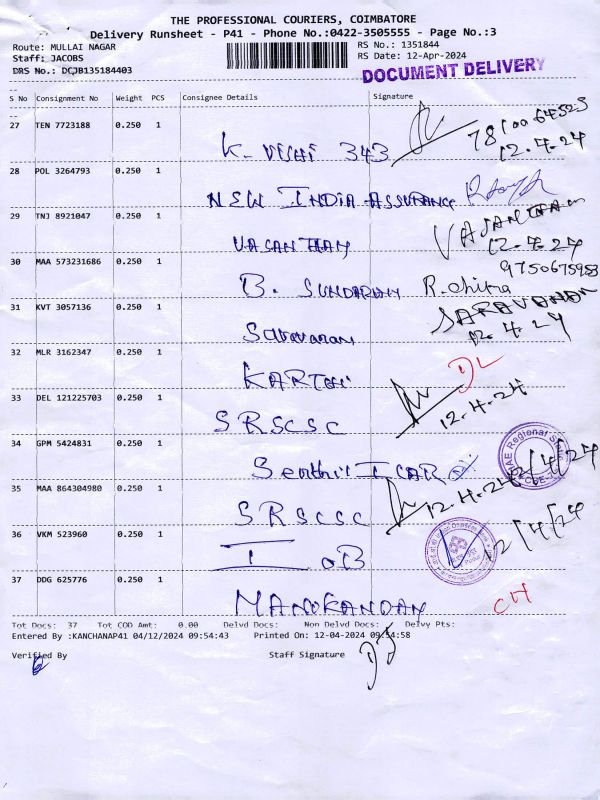 THE PROFESSIONAL COURIERS, COIMBATORE
Delivery Runsheet - P41 - Phone No.:0422-3505555 - Page No.:3
Route: MULLAI NAGAR RS No.: 1351844
Staff: JACOBS RS Date: 12-Apr-2024
DRS No.: DCJB135184403 DOCUMENT DELIVERY
S No Consignment No Weight PCS Consignee Details Signature
27 TEN 7723188 0.250 1 K. VISHI 343 12.4.24
28 POL 3264793 0.250 1 NEW INDIA ASSURANCE
29 TNJ 8921047 0.250 1 VASANTHAM VASANTHAM 12.4.24
30 MAA 573231686 0.250 1 B. SUNDARAM R. chitra 9750675953
31 KVT 3057136 0.250 1 Saravanan SARAVANAN 12.4.24
32 MLR 3162347 0.250 1 KARTHI DL
33 DEL 121225703 0.250 1 SRSCSC 12.4.24
34 GPM 5424831 0.250 1 Senthil ICAR 12/4/24
35 MAA 864304980 0.250 1 SRSCSC 12.4.24
36 VKM 523960 0.250 1 I OB 12/4/24
37 DDG 625776 0.250 1 MANOKANDAN CH
Tot Docs: 37 Tot COD Amt: 0.00 Delvd Docs: Non Delvd Docs: Delvy Pts:
Entered By :KANCHANAP41 04/12/2024 09:54:43 Printed On: 12-04-2024 09:54:58
Verified By Staff Signature